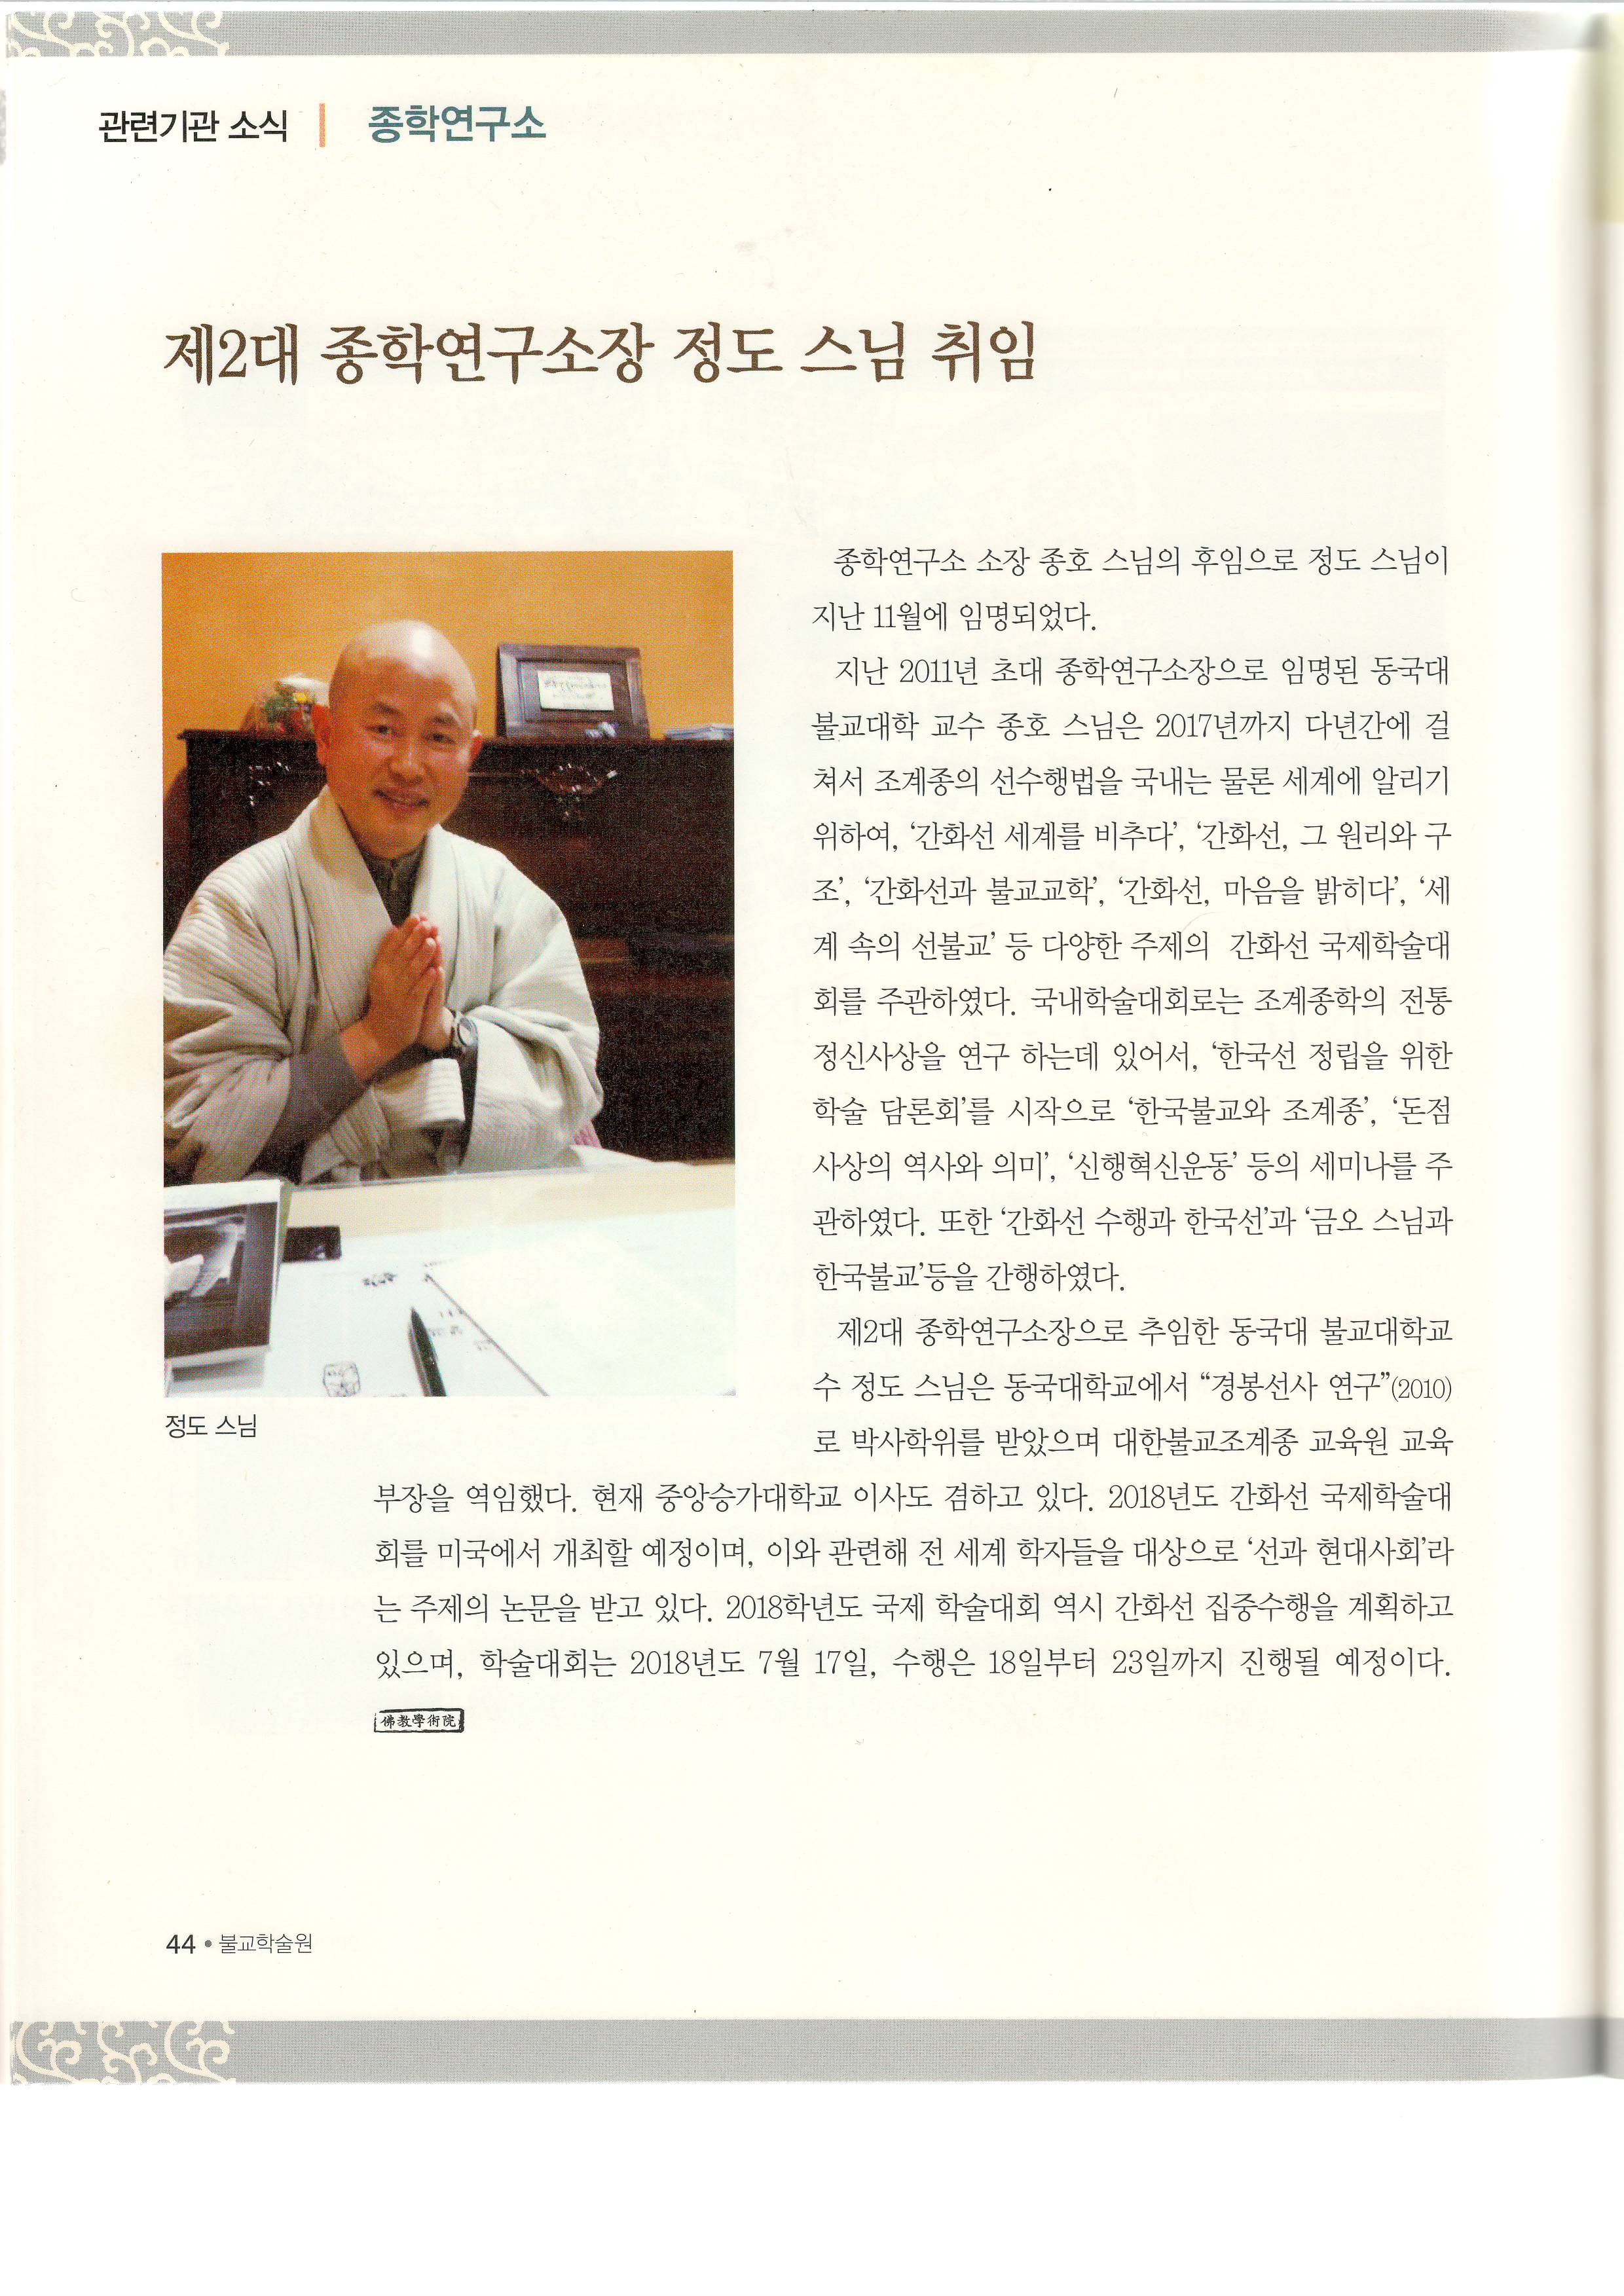 관련기관 소식 | 종학연구소
제2대 종학연구소장 정도 스님 취임
종학연구소 소장 종호 스님의 후임으로 정도 스님이
지난 11월에 임명되었다.
지난 2011년 초대 종학연구소장으로 임명된 동국대
불교대학 교수 종호 스님은 2017년까지 다년간에 걸
쳐서 조계종의 선수행법을 국내는 물론 세계에 알리기
위하여, ‘간화선 세계를 비추다’, ‘간화선, 그 원리와 구
조’, ‘간화선과 불교교학’, ‘간화선, 마음을 밝히다’, ‘세
계 속의 선불교’ 등 다양한 주제의 간화선 국제학술대
회를 주관하였다. 국내학술대회로는 조계종학의 전통
정신사상을 연구 하는데 있어서, ‘한국선 정립을 위한
학술 담론회’를 시작으로 ‘한국불교와 조계종’, ‘돈점
사상의 역사와 의미’, ‘신행혁신운동’ 등의 세미나를 주
관하였다. 또한 ‘간화선 수행과 한국선’과 ‘금오 스님과
한국불교’등을 간행하였다.
제2대 종학연구소장으로 추임한 동국대 불교대학교
수 정도 스님은 동국대학교에서 “경봉선사 연구”(2010)
로 박사학위를 받았으며 대한불교조계종 교육원 교육
부장을 역임했다. 현재 중앙승가대학교 이사도 겸하고 있다. 2018년도 간화선 국제학술대
회를 미국에서 개최할 예정이며, 이와 관련해 전 세계 학자들을 대상으로 ‘선과 현대사회’라
는 주제의 논문을 받고 있다. 2018학년도 국제 학술대회 역시 간화선 집중수행을 계획하고
있으며, 학술대회는 2018년도 7월 17일, 수행은 18일부터 23일까지 진행될 예정이다.
佛教學術院
정도 스님
44 • 불교학술원